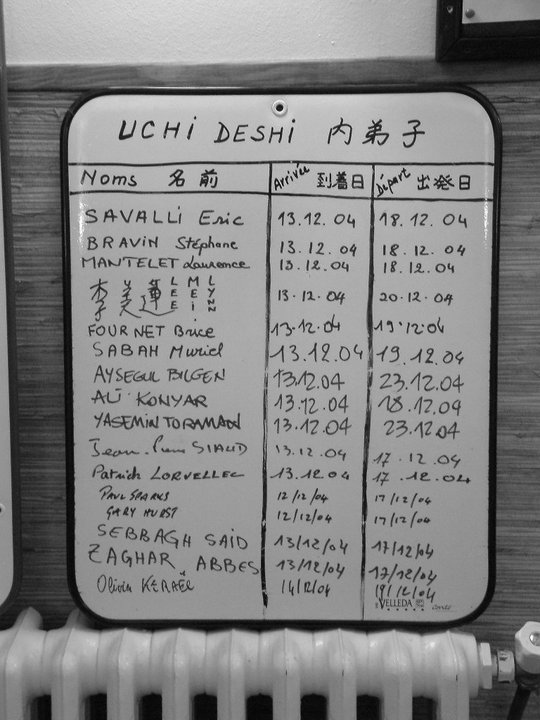 UCHi DESHi 内弟子
Noms 名前 Arrivée 到着日 Départ 出発日
SAVALLi Eric 13.12.04 18.12.04
BRAViN Stéphane 13.12.04 18.12.04
MANTELET Laurence 13.12.04 18.12.04
李美蓮 LEE MEi LYNN 13.12.04 20.12.04
FOURNET Brice 13.12.04 19.12.04
SABAH Muriel 13.12.04 19.12.04
AYSEGUL BILGEN 13.12.04 23.12.04
ALİ KONYAR 13.12.04 18.12.04
YASEMIN TORAMAN 13.12.04 23.12.04
Jean-Pierre SIAUD 13.12.04 17.12.04
Patrick LORVELLEC 13.12.04 17.12.04
PAUL SPARKS 12/12/04 17/12/04
GARY HURST 12/12/04 17/12/04
SEBBAGH SAÏD 13/12/04 17/12/04
ZAGHAR ABBES 13/12/04 17/12/04
Olivier 14/12/04 19/12/04
VELLEDA